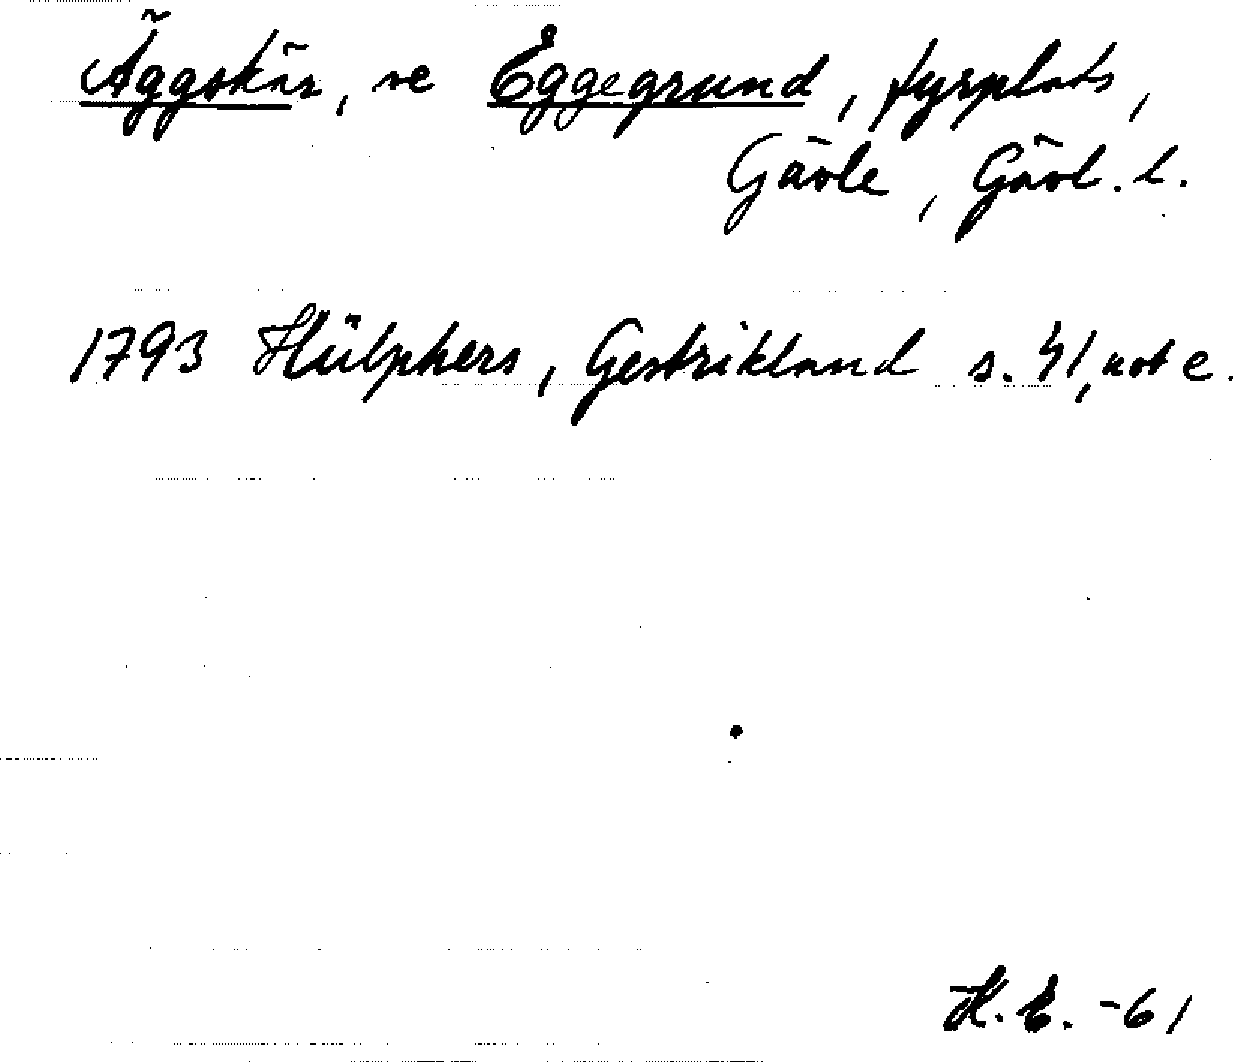 Äggskär, se Eggegrund, fyrplats,
Gävle, Gävl. l.
1793 Hülphers, Gestrikland s. 41, not e.
H. E. -61